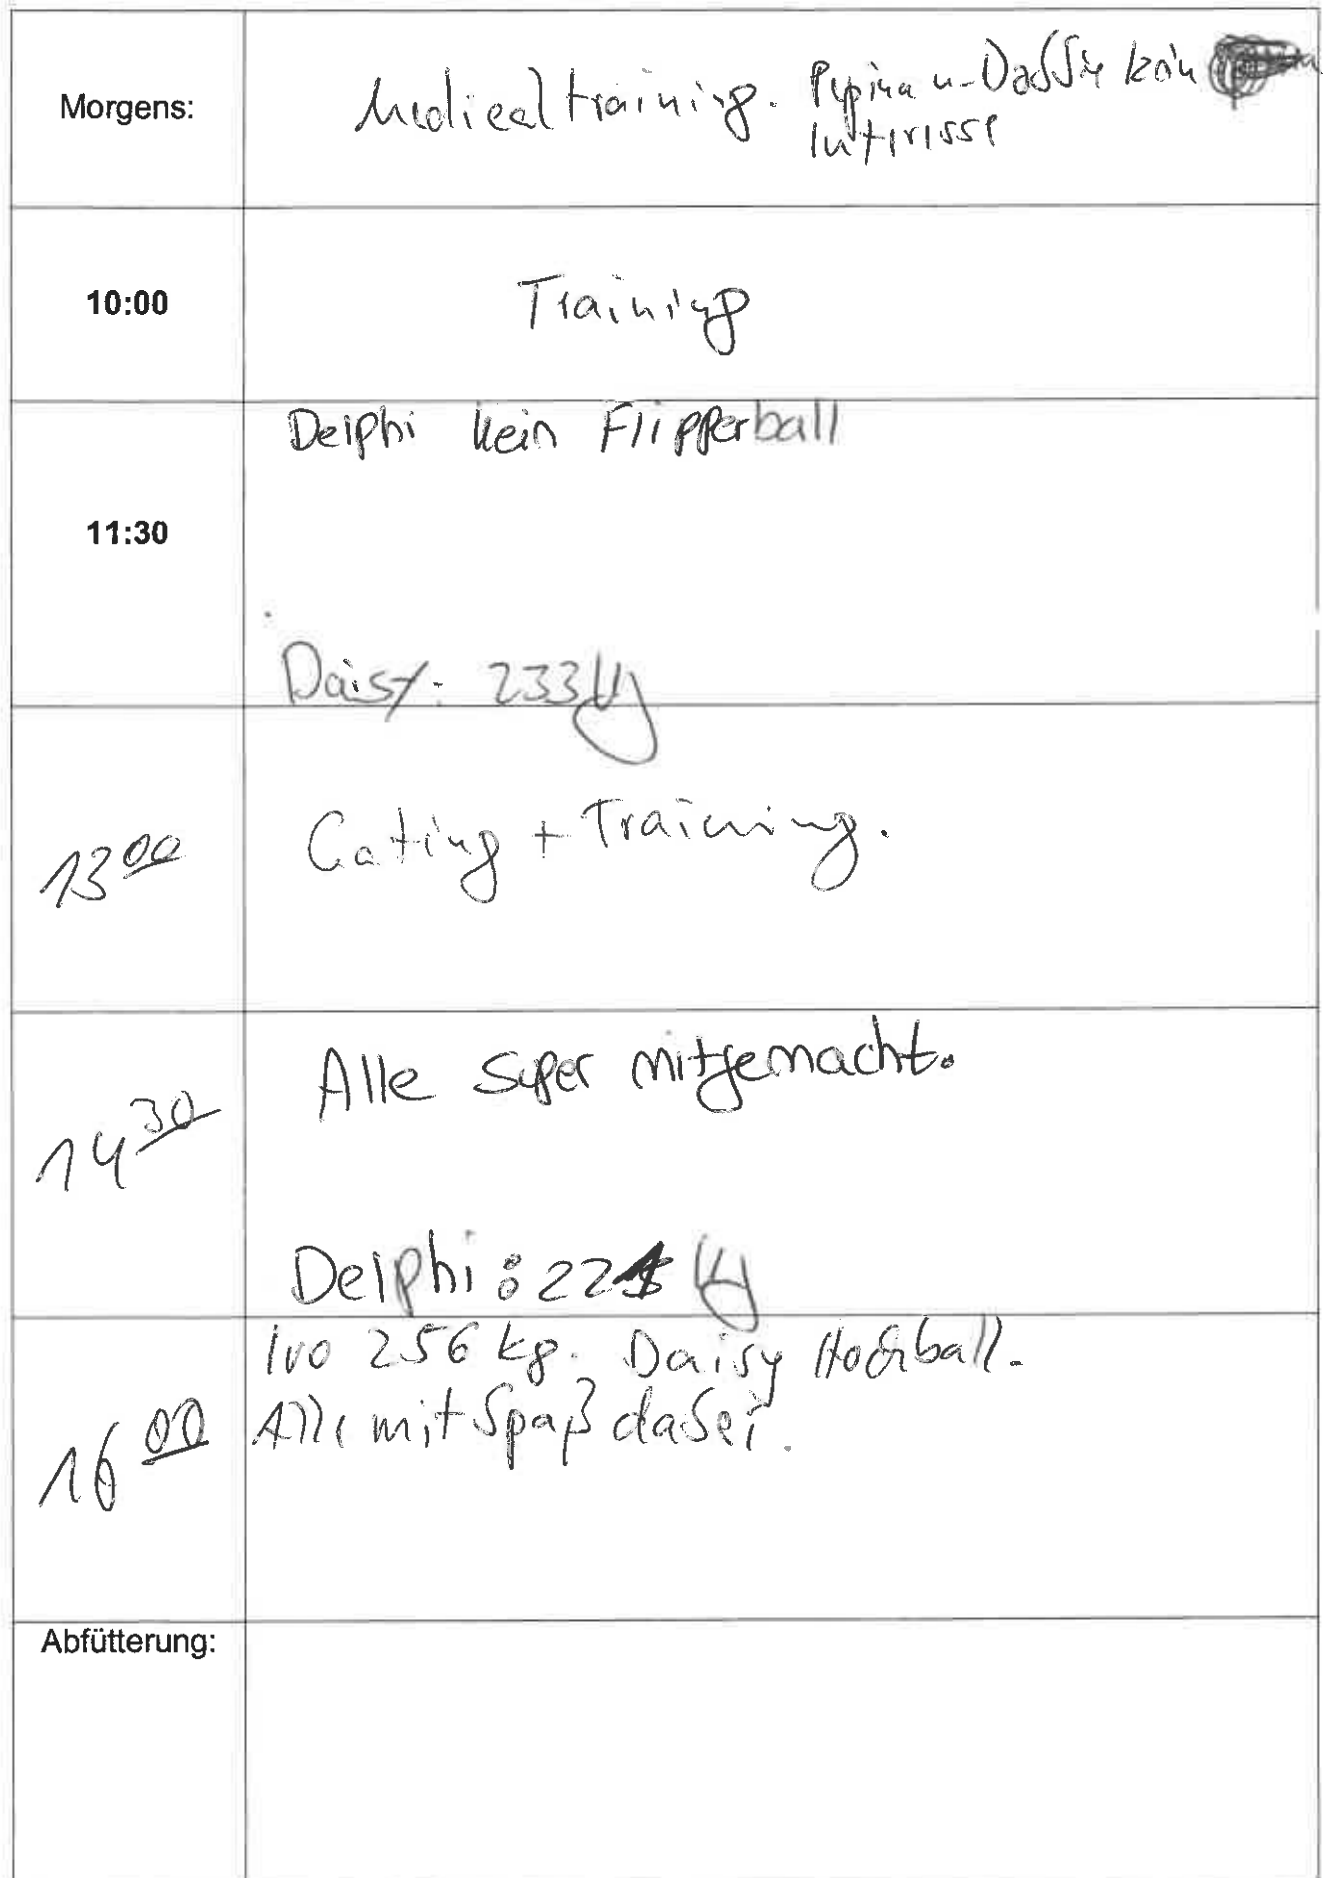 Morgens:
Medicaltraining. Pepina u. Dassie kein
Interesse
10:00
Training
Delphi kein Flipperball
11:30
Daisy: 233kg
13 00
Gating + Training.
Alle super mitgemacht.
14 30
Delphi: kg
Ivo 256 kg. Daisy Hochball.
Alle mit Spaß dabei.
16 00
Abfütterung: